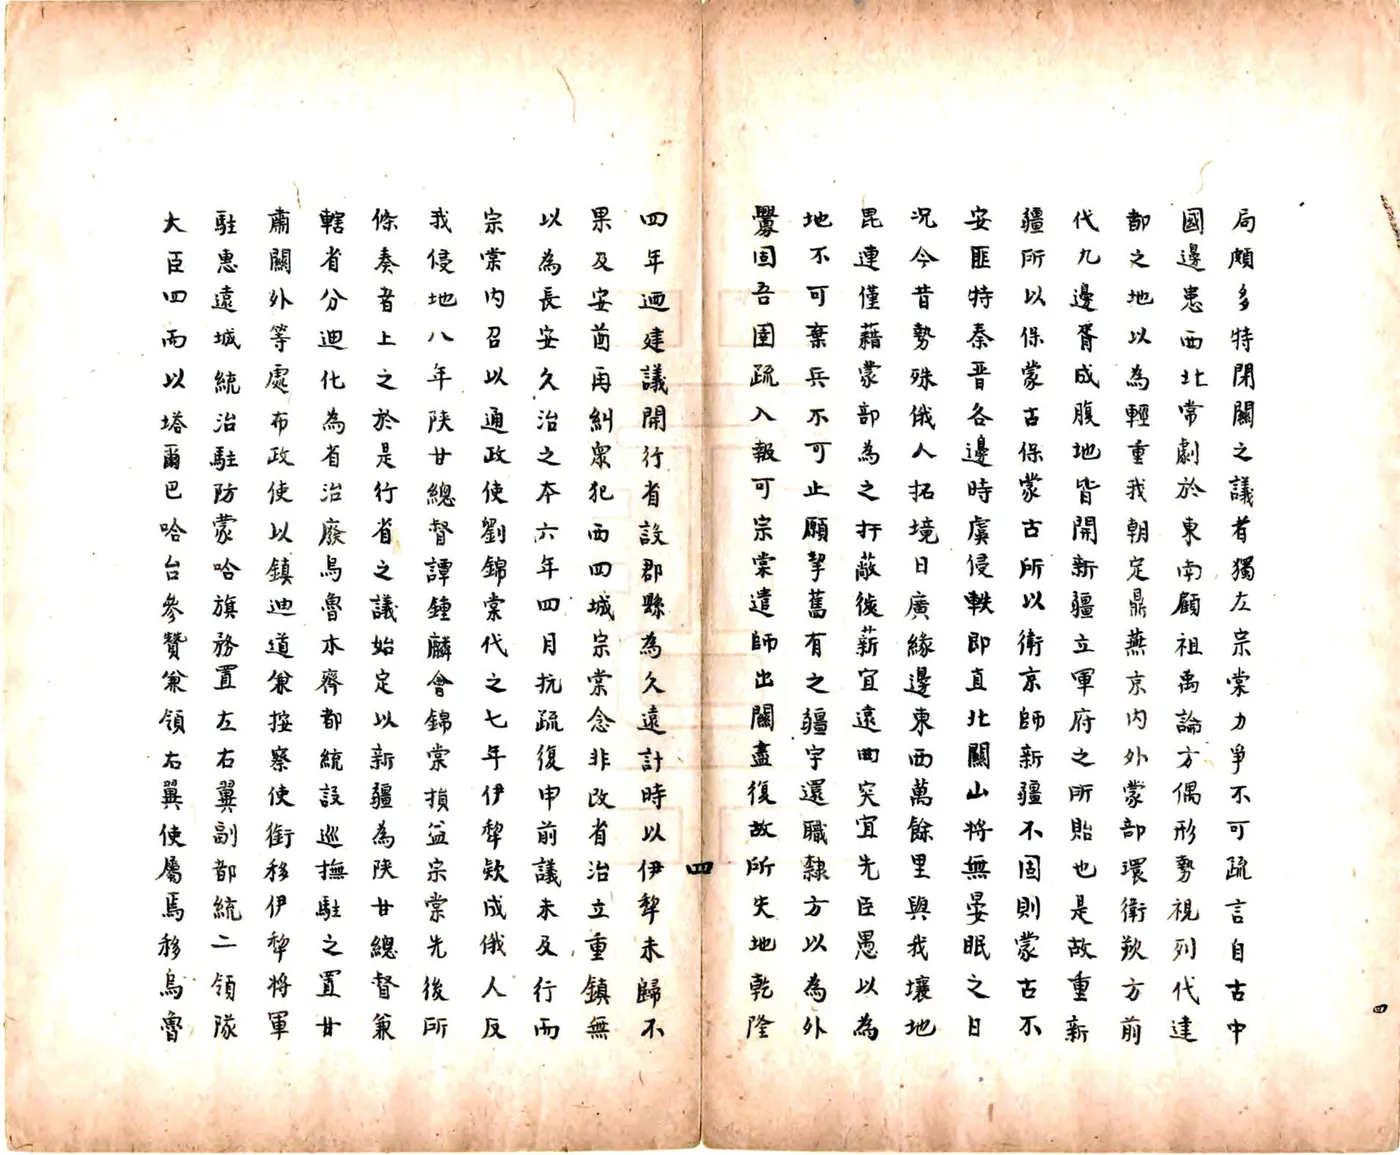 局頗多特閉關之議者獨左宗棠力爭不可疏言自古中
國邊患西北常劇於東南顧祖禹論方偶形勢視列代建
都之地以為輕重我朝定鼎燕京內外蒙部環衛欵方前
代九邊胥成腹地皆開新疆立軍府之所貽也是故重新
疆所以保蒙古保蒙古所以衛京師新疆不固則蒙古不
安匪特秦晉各邊時虞侵軼即直北關山將無晏眠之日
況今昔勢殊俄人拓境日廣緣邊東西萬餘里與我壤地
毘連僅藉蒙部為之扞蔽徙薪宜遠曲突宜先臣愚以為
地不可棄兵不可止願挈舊有之疆宇還職隸方以為外
釁固吾圉疏入報可宗棠遣師出關盡復故所失地乾隆
四
四年迺建議開行省設郡縣為久遠計時以伊犂未歸不
果及安酋再糾眾犯西四城宗棠念非改省治立重鎮無
以為長安久治之本六年四月抗疏復申前議未及行而
宗棠內召以通政使劉錦棠代之七年伊犂欵成俄人反
我侵地八年陝甘總督譚鍾麟會錦棠損益宗棠先後所
條奏者上之於是行省之議始定以新疆為陝甘總督兼
轄省分迪化為省治廢烏魯木齊都統設巡撫駐之置甘
肅關外等處布政使以鎮迪道兼按察使銜移伊犂將軍
駐惠遠城統治駐防蒙哈旗務置左右翼副都統二領隊
大臣四而以塔爾巴哈台參贊兼領右翼使屬焉移烏魯
四